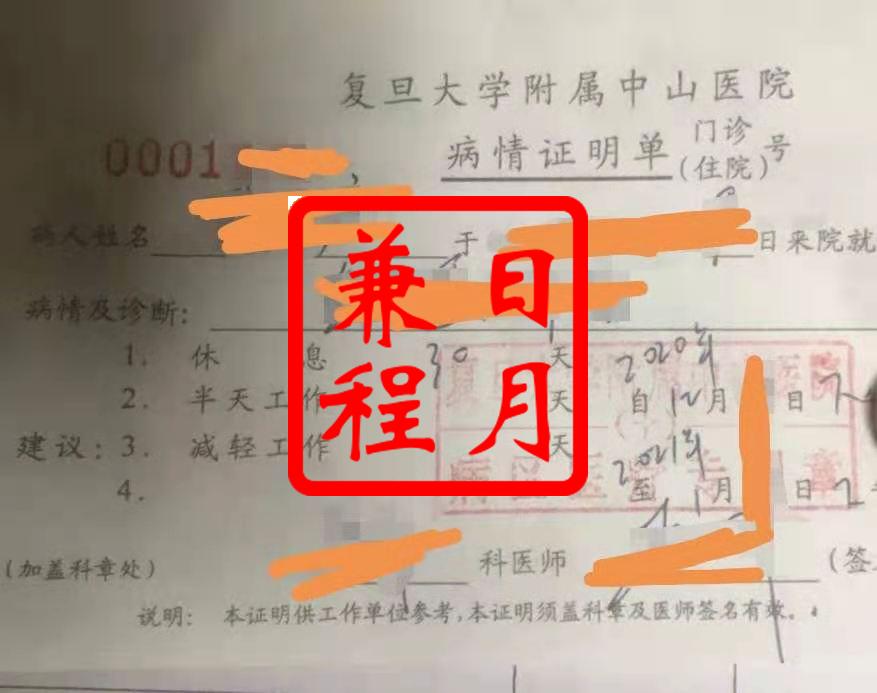 复旦大学附属中山医院
0001
病情证明单 门诊(住院)号
病人姓名 于 日来院就
病情及诊断:
1. 休息 30 天 2020年
2. 半天工作 天 自12月 日
建议: 3. 减轻工作 天 2021年
4. 至1月 日
(加盖科章处) 科医师 (签
说明: 本证明供工作单位参考,本证明须盖科章及医师签名有效。
兼日
程月